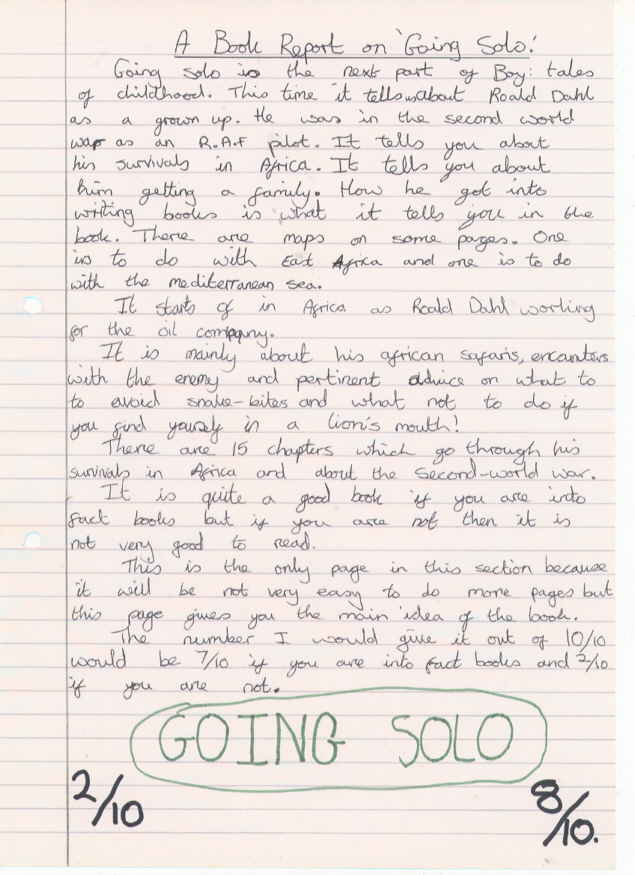 A Book Report on 'Going Solo.'
Going solo is the next part of Boy: tales
of childhood. This time it tells us about Roald Dahl
as a grown up. He was in the second world
war as an R.A.F pilot. It tells you about
his survivals in Africa. It tells you about
him getting a family. How he got into
writing books is what it tells you in the
book. There are maps on some pages. One
is to do with East Africa and one is to do
with the mediterranean sea.
It starts of in Africa as Roald Dahl working
for the oil company.
It is mainly about his african safaris, encounters
with the enemy and pertinent advice on what to
to avoid snake-bites and what not to do if
you find yourself in a lion's mouth!
There are 15 chapters which go through his
survivals in Africa and about the Second-world war.
It is quite a good book if you are into
fact books but if you are not then it is
not very good to read.
This is the only page in this section because
it will be not very easy to do more pages but
this page gives you the main idea of the book.
The number I would give it out of 10/10
would be 7/10 if you are into fact books and 2/10
if you are not.
GOING SOLO
2/10 8/10.